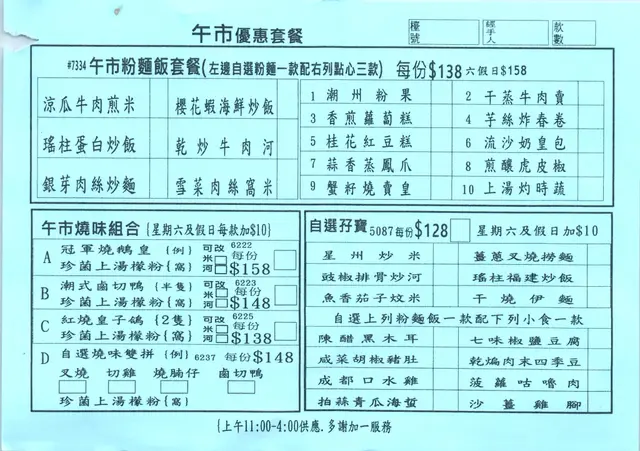 午市優惠套餐
檯號
經手人
款數
#7334 午市粉麵飯套餐(左邊自選粉麵一款配右列點心三款) 每份$138 六假日$158
涼瓜牛肉煎米 櫻花蝦海鮮炒飯
瑤柱蛋白炒飯 乾炒牛肉河
銀芽肉絲炒麵 雪菜肉絲窩米
1 潮州粉果 2 干蒸牛肉賣
3 香煎蘿蔔糕 4 芋絲炸春卷
5 桂花紅豆糕 6 流沙奶皇包
7 蒜香蒸鳳爪 8 煎釀虎皮椒
9 蟹籽燒賣皇 10 上湯灼時蔬
午市燒味組合 {星期六及假日每款加$10}
A 冠軍燒鵝皇 {例} 可改 6222
珍菌上湯檬粉{窩} 米 河 每份$158
B 潮式鹵切鴨 {半隻} 可改 6223
珍菌上湯檬粉{窩} 米 河 每份$148
C 紅燒皇子鴿 {2隻} 可改 6225
珍菌上湯檬粉{窩} 米 河 每份$138
D 自選燒味雙拼 {例} 6237 每份$148
叉燒 切雞 燒腩仔 鹵切鴨
珍菌上湯檬粉{窩}
自選孖寶 5087每份$128 星期六及假日加$10
星州炒米 薑蔥叉燒撈麵
豉椒排骨炒河 瑤柱福建炒飯
魚香茄子炆米 干燒伊麵
自選上列粉麵飯一款配下列小食一款
陳醋黑木耳 七味椒鹽豆腐
咸菜胡椒豬肚 乾煸肉末四季豆
成都口水雞 菠蘿咕嚕肉
拍蒜青瓜海蜇 沙薑雞腳
{上午11:00-4:00供應.多謝加一服務